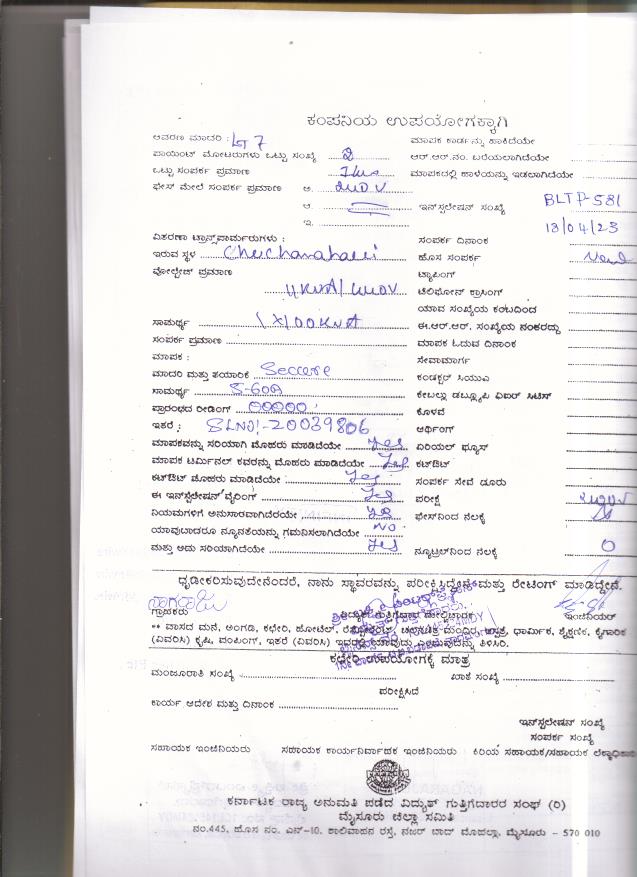 ಕಂಪನಿಯ ಉಪಯೋಗಕ್ಕಾಗಿ
ಆವರಣ ಮಾದರಿ : LT 7 ಮಾಪಕ ಕಾರ್ಡನ್ನು ಹಾಕಿದೆಯೇ
ಪಾಯಿಂಟ್ ಮೋಟರುಗಳು ಒಟ್ಟು ಸಂಖ್ಯೆ 2 ಆರ್.ಆರ್.ನಂ. ಬರೆಯಲಾಗಿದೆಯೇ
ಒಟ್ಟು ಸಂಪರ್ಕ ಪ್ರಮಾಣ ಮಾಪಕದಲ್ಲಿ ಕಾಳೆಯನ್ನು ಇಡಲಾಗಿದೆಯೇ
ಫೇಸ್ ಮೇಲೆ ಸಂಪರ್ಕ ಪ್ರಮಾಣ ಅ. 240V
ಆ. ಇನ್‌ಸ್ಟಲೇಷನ್ ಸಂಖ್ಯೆ BLTP-581
ಇ. 13/04/23
ವಿತರಣಾ ಟ್ರಾನ್ಸ್‌ಫಾರ್ಮರುಗಳು : ಸಂಪರ್ಕ ದಿನಾಂಕ
ಇರುವ ಸ್ಥಳ Chuchanahalli ಹೊಸ ಸಂಪರ್ಕ
ವೋಲ್ಟೇಜ್ ಪ್ರಮಾಣ ಟ್ಯಾಪಿಂಗ್
ಟೆಲಿಫೋನ್ ಕ್ರಾಸಿಂಗ್
ಯಾವ ಸಂಖ್ಯೆಯ ಕಂಬದಿಂದ
ಸಾಮರ್ಥ್ಯ 1X100KVA ಈ.ಆರ್.ಆರ್. ಸಂಖ್ಯೆಯ ನಂತರದ್ದು
ಸಂಪರ್ಕ ಪ್ರಮಾಣ ಮಾಪಕ ಓದುವ ದಿನಾಂಕ
ಮಾಪಕ : ಸೇವಾಮಾರ್ಗ
ಮಾದರಿ ಮತ್ತು ತಯಾರಿಕೆ Secure ಕಂಡಕ್ಟರ್ ಸಿಯುಎ
ಸಾಮರ್ಥ್ಯ 5-60A ಕೇಬಲ್ಲು ಡಬ್ಲ್ಯೂಪಿ ವಿಐರ್ ಸಿಟಿಸ್
ಪ್ರಾರಂಭದ ರೀಡಿಂಗ್ 00000 ಕೊಳವೆ
ಇತರೆ : SLNO:-20039806 ಆರ್ಥಿಂಗ್
ಮಾಪಕವನ್ನು ಸರಿಯಾಗಿ ಮೊಹರು ಮಾಡಿದೆಯೇ Yes ಏರಿಯಲ್ ಫ್ಯೂಸ್
ಮಾಪಕ ಟರ್ಮಿನಲ್ ಕವರನ್ನು ಮೊಹರು ಮಾಡಿದೆಯೇ Yes ಕಟ್‌ಔಟ್
ಕಟ್‌ಔಟ್ ಮೊಹರು ಮಾಡಿದೆಯೇ Yes ಸಂಪರ್ಕ ಸೇವೆ ಡೂರು
ಈ ಇನ್‌ಸ್ಟಲೇಷನ್ ವೈರಿಂಗ್ Yes ಪರೀಕ್ಷೆ 240V
ನಿಯಮಗಳಿಗೆ ಅನುಸಾರವಾಗಿದೆಯೇ Yes ಫೇಸ್‌ನಿಂದ ನೆಲಕ್ಕೆ
ಯಾವುಬಾದರೂ ನ್ಯೂನತೆಯನ್ನು ಗಮನಿಸಲಾಗಿದೆಯೇ NO
ಮತ್ತು ಅದು ಸರಿಯಾಗಿದೆಯೇ Yes ನ್ಯೂಟ್ರಲ್‌ನಿಂದ ನೆಲಕ್ಕೆ 0
ಧೃಡೀಕರಿಸುವುದೇನೆಂದರೆ, ನಾನು ಸ್ಥಾವರವನ್ನು ಪರೀಕ್ಷಿಸಿದ್ದೇನೆ ಮತ್ತು ರೇಟಿಂಗ್ ಮಾಡಿದ್ದೇನೆ.
ನಾಗರಾಜು
ಗ್ರಾಹಕರು ವಿದ್ಯುತ್ ಗುತ್ತಿಗೆದಾರ ಮೇಲ್ವಿಚಾರಕ ಇಂಜಿನಿಯರ್
** ವಾಸದ ಮನೆ, ಅಂಗಡಿ, ಕಛೇರಿ, ಹೋಟೆಲ್, ಧಾರ್ಮಿಕ, ಶೈಕ್ಷಣಿಕ, ಕೈಗಾರಿಕೆ
(ವಿವರಿಸಿ) ಕೃಷಿ, ಪಂಪಿಂಗ್, ಇತರೆ (ವಿವರಿಸಿ) ಇವರಲ್ಲಿ ಯಾವುದು ಎಂಬುವುದನ್ನು ತಿಳಿಸಿರಿ.
ಕಛೇರಿ ಉಪಯೋಗಕ್ಕೆ ಮಾತ್ರ
ಮಂಜೂರಾತಿ ಸಂಖ್ಯೆ ಖಾತೆ ಸಂಖ್ಯೆ
ಪರೀಕ್ಷಿಸಿದೆ
ಕಾರ್ಯ ಆದೇಶ ಮತ್ತು ದಿನಾಂಕ
ಇನ್‌ಸ್ಟಲೇಷನ್ ಸಂಖ್ಯೆ
ಸಂಪರ್ಕ ಸಂಖ್ಯೆ
ಸಹಾಯಕ ಇಂಜಿನಿಯರು ಸಹಾಯಕ ಕಾರ್ಯನಿರ್ವಾಹಕ ಇಂಜಿನಿಯರು ಕಿರಿಯ ಸಹಾಯಕ/ಸಹಾಯಕ ಲೆಕ್ಕಾಧಿಕಾರಿ
ಕರ್ನಾಟಕ ರಾಜ್ಯ ಅನುಮತಿ ಪಡೆದ ವಿದ್ಯುತ್ ಗುತ್ತಿಗೆದಾರರ ಸಂಘ (ರಿ)
ಮೈಸೂರು ಜಿಲ್ಲಾ ಸಮಿತಿ
ನಂ.445, ಹೊಸ ನಂ. ಎನ್-10, ಶಾಲಿವಾಹನ ರಸ್ತೆ, ನಜರ್ ಬಾದ್ ಮೊಹಲ್ಲಾ, ಮೈಸೂರು - 570 010